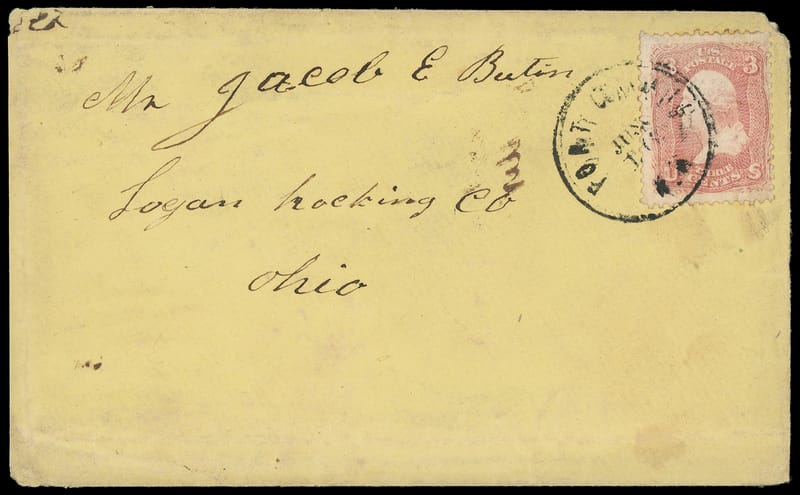 Mr Jacob E Butin
Logan Hocking Co
Ohio
FORT
JUN
U.S.
POSTAGE
3 3
CENTS